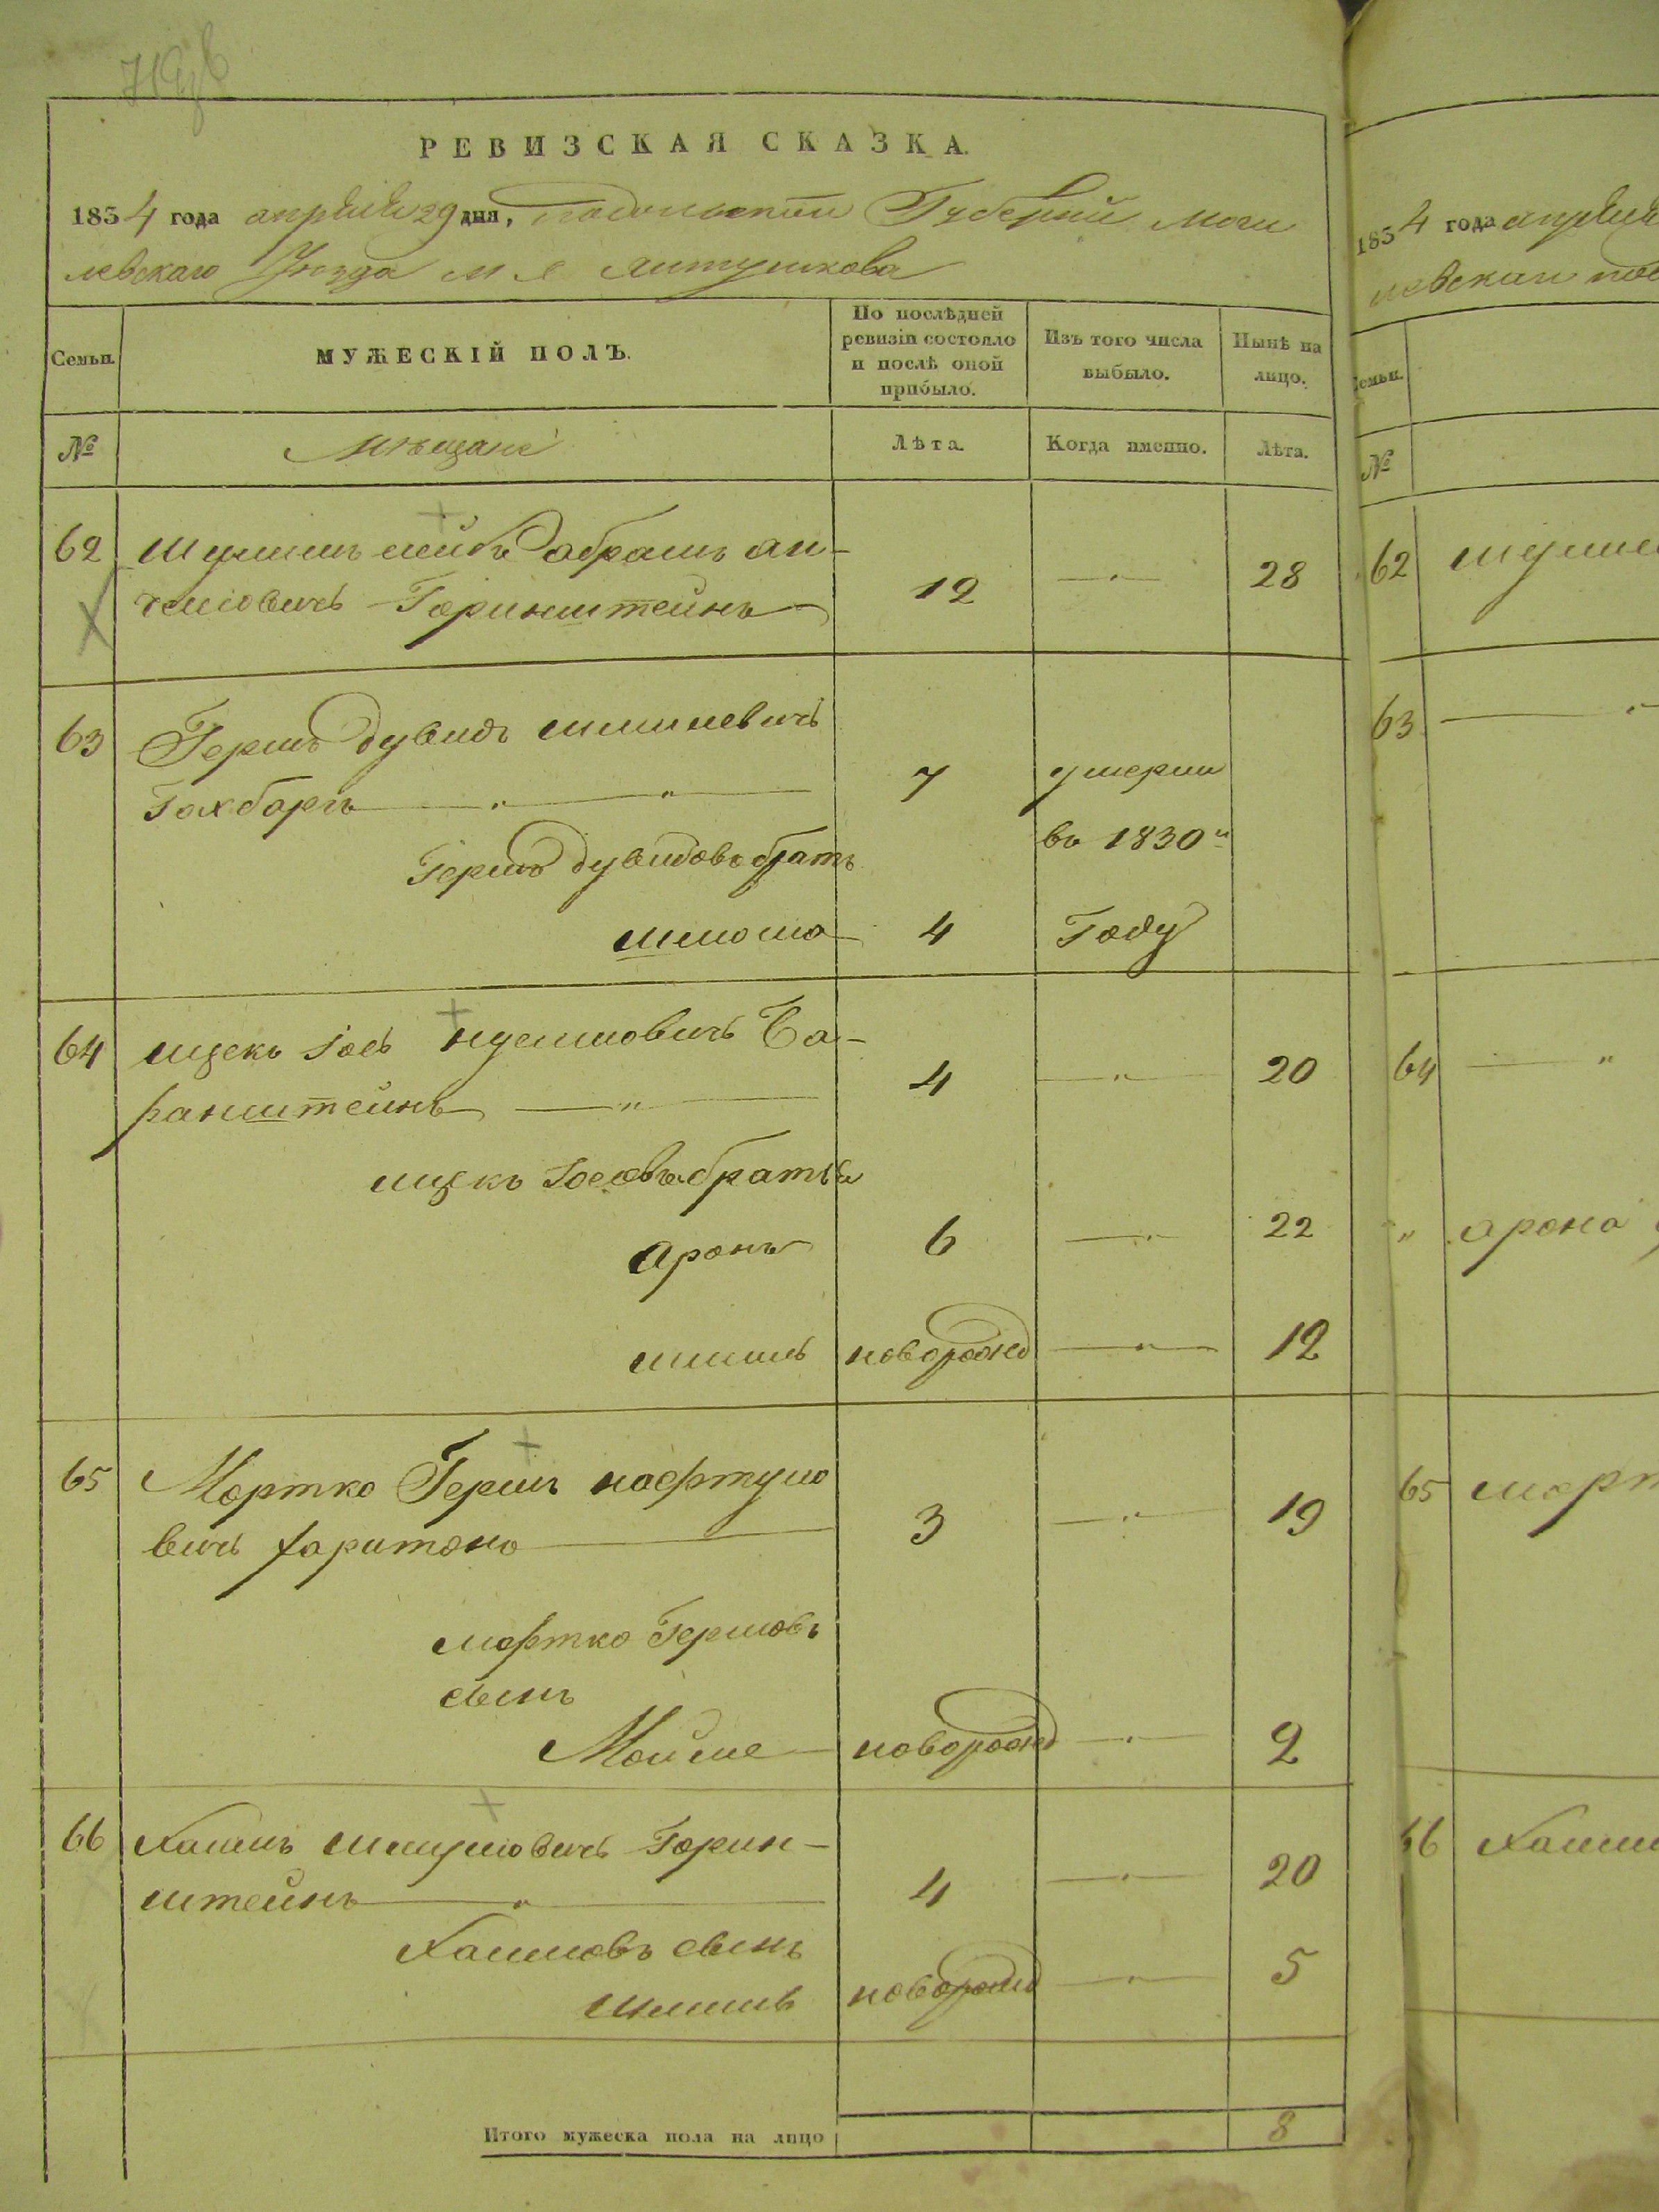 РЕВИЗСКАЯ СКАЗКА.
1834 года апреля 29 дня, подольской Губернии моги
левскаго Уезда м Ялтушкова
Семьи.
МУЖЕСКІЙ ПОЛЪ.
По послѣдней ревизіи состояло и послѣ оной прибыло.
Изъ того числа выбыло.
Нынѣ на лицо.
№ Мѣщане Лѣта. Когда именно. Лѣта.
62 абрамъ ан-
човичъ Горинштейнъ 12 28
63 Гершъ дувидъ шмилевичъ
Гохбаргъ 7 умерли
Гершъ дувидовъ братъ въ 1830м
4 Году
64 ицекъ Iосъ Ба-
ранштейнъ 4 20
ицекъ Iосовы братья
аронъ 6 22
шмиль новорожд 12
65 Мортко Гершъ нафтуло
вичъ харитонъ 3 19
мортко Гершовъ
сынъ
Мойше новорожд 2
66 Хаимъ шмуловичъ Горин-
штейнъ 4 20
Хаимовъ сынъ
Шмиль новорожд 5
Итого мужеска пола на лицо 8
1834 года апреля
62
63
64
" арона
65 морт
66 Хаим